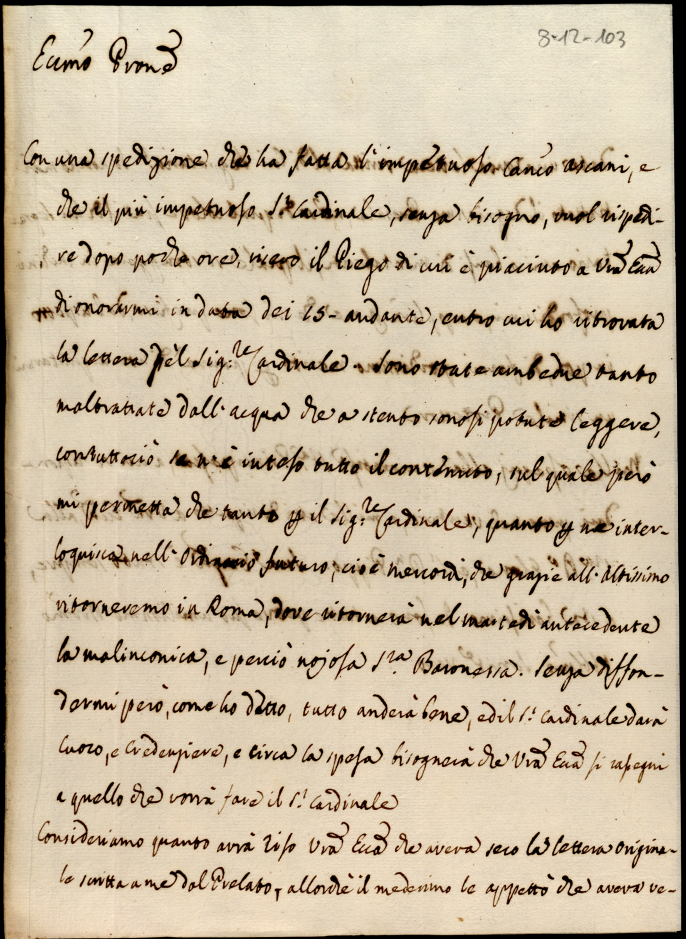 8-12-103
Eccmo Prone
Con una spedizione che ha fatta l'impetuoso Canco Ascani, e
che il più impetuoso Sr Cardinale, senza bisogno, vuol rispedi-
re dopo poche ore, ricevo il Piego di cui è piaciuto a Vra Ecca
di onorarmi in data dei 15- andante, entro cui ho ritrovata
la lettera pel Sig:re Cardinale. Sono state ambedue tanto
maltrattate dall'acqua che a stento sonosi potute leggere,
contuttociò se n'è inteso tutto il contenuto, sul quale però
mi permetta che tanto p il Sig:re Cardinale, quanto p me inter-
loquisca nell'Ordinario futuro, cioè Mercordì, che grazie all'Altissimo
ritorneremo in Roma, dove ritornerà nel martedì antecedente
la malinconica, e perciò nojosa Sra Baronessa. Senza diffon-
dermi però, come ho detto, tutto anderà bene, ed il Sr Cardinale darà
Cuoco, e Credenziere, e circa la spesa bisognerà che Vra Ecca si rassegni
a quello che vorrà fare il Sr Cardinale
Consideriamo quanto avrà riso Vra Ecca che aveva seco la lettera origina-
le scritta a me dal Prelato, allorchè il medesimo le che aveva ve-